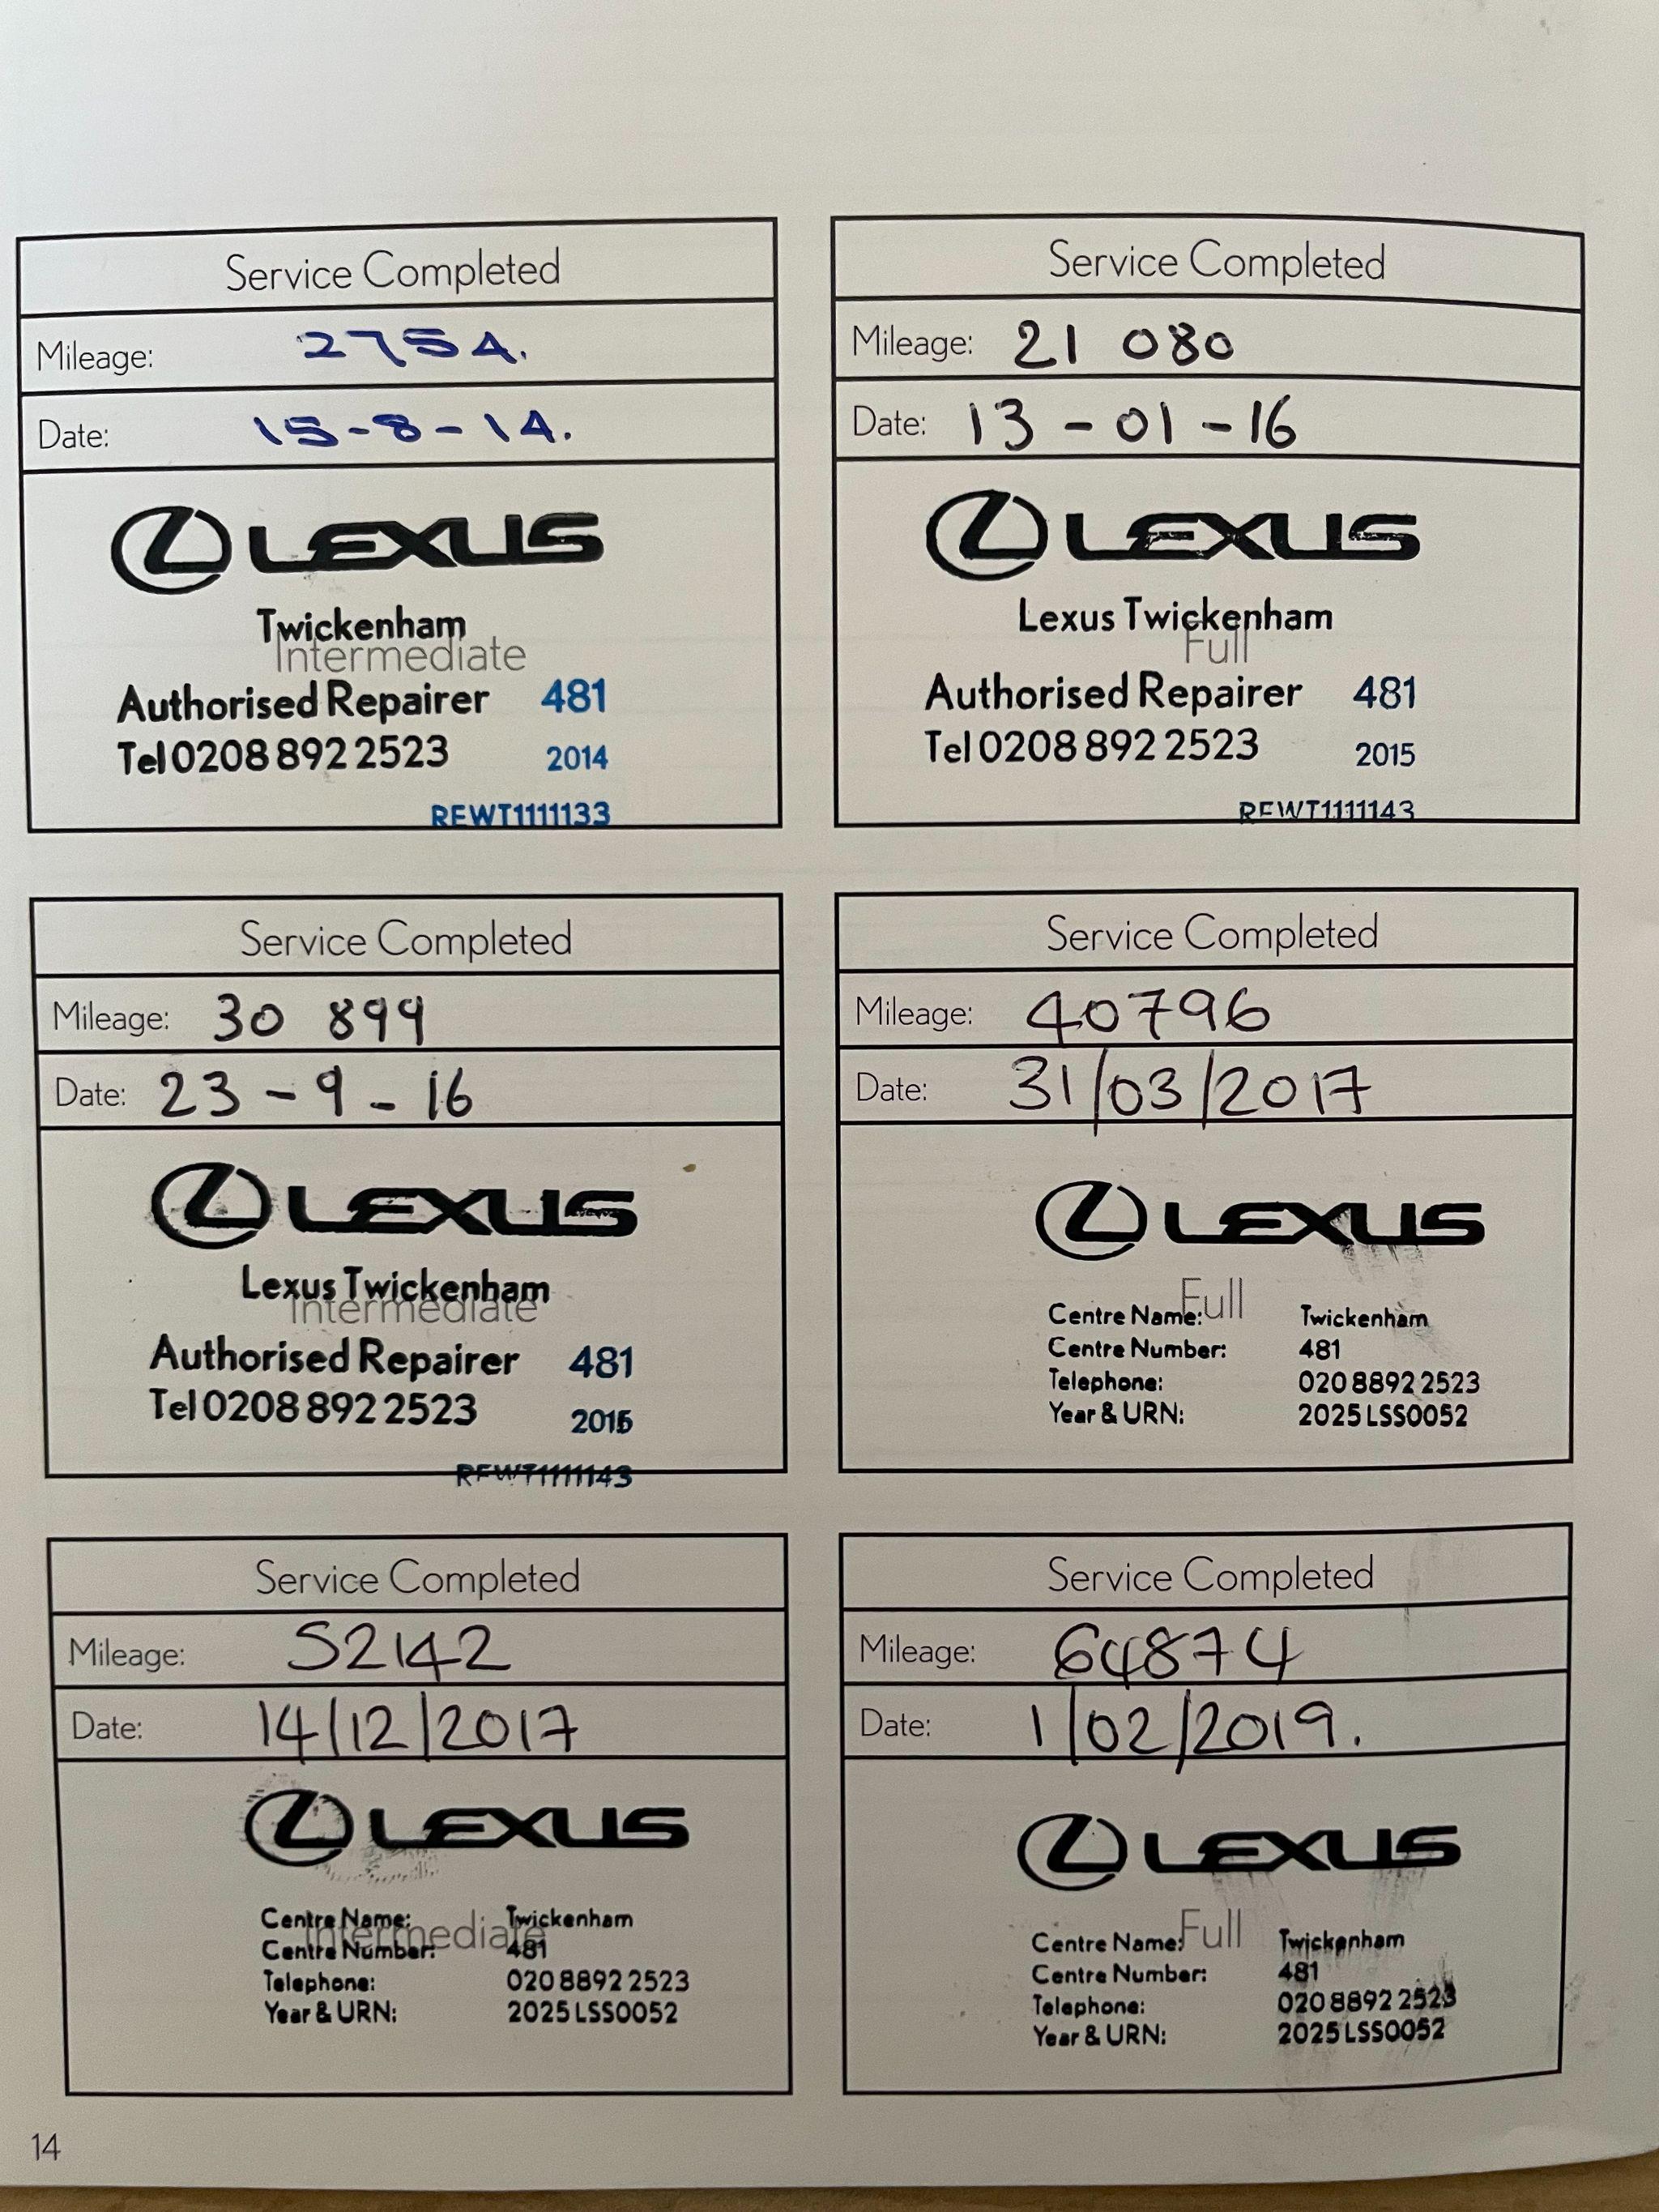 Service Completed
Mileage: 2754.
Date: 15-8-14.
LEXUS
Twickenham
Intermediate
Authorised Repairer 481
Tel 0208 892 2523 2014
REWT1111133
Service Completed
Mileage: 21 080
Date: 13-01-16
LEXUS
Lexus Twickenham
Full
Authorised Repairer 481
Tel 0208 892 2523 2015
REWT1111143
Service Completed
Mileage: 30 899
Date: 23-9-16
LEXUS
Lexus Twickenham
Intermediate
Authorised Repairer 481
Tel 0208 892 2523
REWT1111143
Service Completed
Mileage: 40796
Date: 31/03/2017
LEXUS
Full
Centre Name: Twickenham
Centre Number: 481
Telephone: 020 8892 2523
Year & URN: 2025 LSS0052
Service Completed
Mileage: 52142
Date: 14/12/2017
LEXUS
Centre Name: Twickenham
Intermediate
Centre Number: 481
Telephone: 020 8892 2523
Year & URN: 2025 LSS0052
Service Completed
Mileage: 64874
Date: 1/02/2019.
LEXUS
Full
Centre Name: Twickenham
Centre Number: 481
Telephone: 020 8892 2523
Year & URN: 2025 LSS0052
14